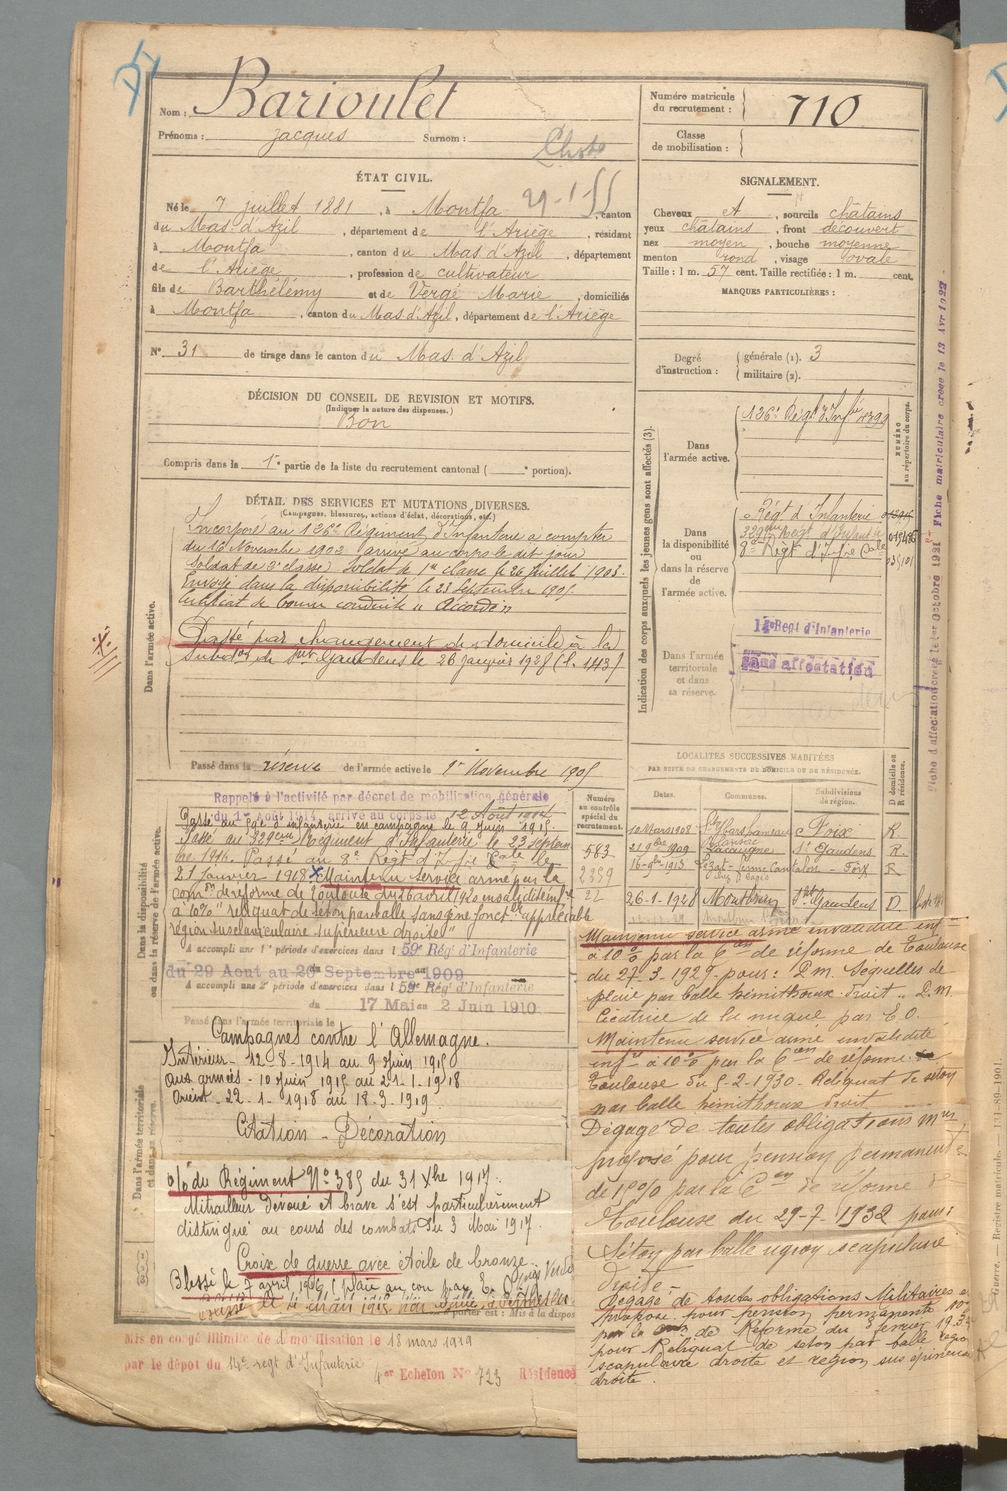 Nom : Barioulet
Prénoms : Jacques Surnom :
Photo
29-1-55
Numéro matricule
du recrutement : 710
Classe
de mobilisation :
ÉTAT CIVIL.
Né le 7 juillet 1881, à Montfa, canton
du Mas d'Azil, département de l'Ariège, résidant
à Montfa, canton du Mas d'Azil, département
de l'Ariège, profession de cultivateur
fils de Barthélemy et de Vergé Marie, domiciliés
à Montfa, canton du Mas d'Azil, département de l'Ariège
N° 31 de tirage dans le canton du Mas d'Azil
SIGNALEMENT.
Cheveux et, sourcils châtains
yeux châtains, front découvert
nez moyen, bouche moyenne
menton rond, visage ovale
Taille : 1 m. 57 cent. Taille rectifiée : 1 m. cent.
MARQUES PARTICULIÈRES :
Degré
d'instruction :
générale (1). 3
militaire (2).
DÉCISION DU CONSEIL DE REVISION ET MOTIFS.
(Indiquer la nature des dispenses.)
Bon
Compris dans la 1re partie de la liste du recrutement cantonal ( e portion).
DÉTAIL DES SERVICES ET MUTATIONS DIVERSES.
(Campagnes, blessures, actions d'éclat, décorations, etc.)
Dans l'armée active.
Incorporé au 126e Régiment d'Infanterie à compter
du 16 Novembre 1902 arrivé au corps le dit jour
Soldat de 2e classe. Soldat de 1re classe le 26 Juillet 1903.
Envoyé dans la disponibilité le 23 Septembre 1905.
Certificat de bonne conduite "Accordé"
Passé par changement de domicile à la
subdon de St Gaudens le 26 janvier 1928 (l. 143)
Passé dans la réserve de l'armée active le 1er Novembre 1905
Indication des corps auxquels les jeunes gens sont affectés (3).
Dans
l'armée active.
126e Régt d'Infie 4399
NUMÉRO
au répertoire du corps.
Dans
la disponibilité
ou
dans la réserve
de
l'armée active.
Régt d'Infanterie
329eme Régt d'Infanterie
8e Regt d'Infie Cale
Dans l'armée
territoriale
et dans
sa réserve.
14e Regt d'Infanterie
Sans affectation
Fiche d'affectation créée le 1er Octobre 1921 Fiche matriculaire créée le 13 Avr 1922
LOCALITÉS SUCCESSIVES HABITÉES
PAR SUITE DE CHANGEMENTS DE DOMICILE OU DE RÉSIDENCE.
Numéro
au contrôle
spécial du
recrutement.
Dates. Communes. Subdivisions
de région. D domicile ou
R résidence.
10 Mars 1908 Foix R.
583 21 9bre 1909 St Gaudens R.
2359 16-9bre-1913 Foix R
22 26-1-1928 Montbrun St Gaudens D
Dans la disponibilité
ou dans la réserve de l'armée active.
Rappelé à l'activité par décret de mobilisation générale
du 1er Août 1914, arrivé au corps le 12 Août 1914
Passé au d'infanterie en campagne le 9 Juin 1915.
Passé au 329eme Régiment d'Infanterie le 23 Septem
bre 1916. Passé au 8e Régt d'Infie Cale le
21 Janvier 1918 Maintenu service armé par la
comon de réforme de Toulouse du 26 avril 1920 invalidité infre
à 10% "reliquat de séton par balle sans gêne fonctlle appréciable
région susclaviculaire supérieure droite"
A accompli une 1re période d'exercices dans l 59e Rég d'Infanterie
du 29 Aout au 20 Septembre 1909
A accompli une 2e période d'exercices dans l 59e Rég d'Infanterie
du 17 Mai au 2 Juin 1910
Passé dans l'armée territoriale le
Dans l'armée territoriale
et dans sa réserve.
Campagnes contre l'Allemagne.
Intérieur - 12-8-1914 au 9 Juin 1915
Aux armées - 10 Juin 1915 au 21-1-1918
Orient - 22-1-1918 au 18-3-1919.
Citation - Décoration
o/o du Régiment No 385 du 31 Xbre 1917.
Mitrailleur dévoué et brave s'est particulièrement
distingué au cours des combats du 3 Mai 1917.
Croix de guerre avec étoile de bronze.
Blessé le 7 avril 1916 (plaie au cou par E.
Mis en congé illimité de démobilisation le 18 mars 1919
par le dépôt du 14e regt d'Infanterie
4er Echelon No 723 Résidence
Maintenu service armé invalidité infre
à 10% par la Con de réforme de Toulouse
du 27-3-1929 pour : D.M. Séquelles de
plaie par balle hémithorax droit. D.M.
Cicatrice de la nuque par E.O.
Maintenu service armé invalidité
infre à 10% par la Con de réforme de
Toulouse du 5-2-1930. Reliquat de séton
par balle hémithorax droit
Dégagé de toutes obligations mres
proposé pour pension permanente
de 10% par la Con de réforme de
Toulouse du 29-7-1932 pour :
Séton par balle région scapulaire
droite.
Dégagé de toutes obligations Militaires et
proposé pour pension permanente 10%
par la Con de Réforme du 3 1934
pour Reliquat de séton par balle région
scapulaire droite et région sus épineuse
droite.
Guerre. Registre matricule. — 131-89-1901.